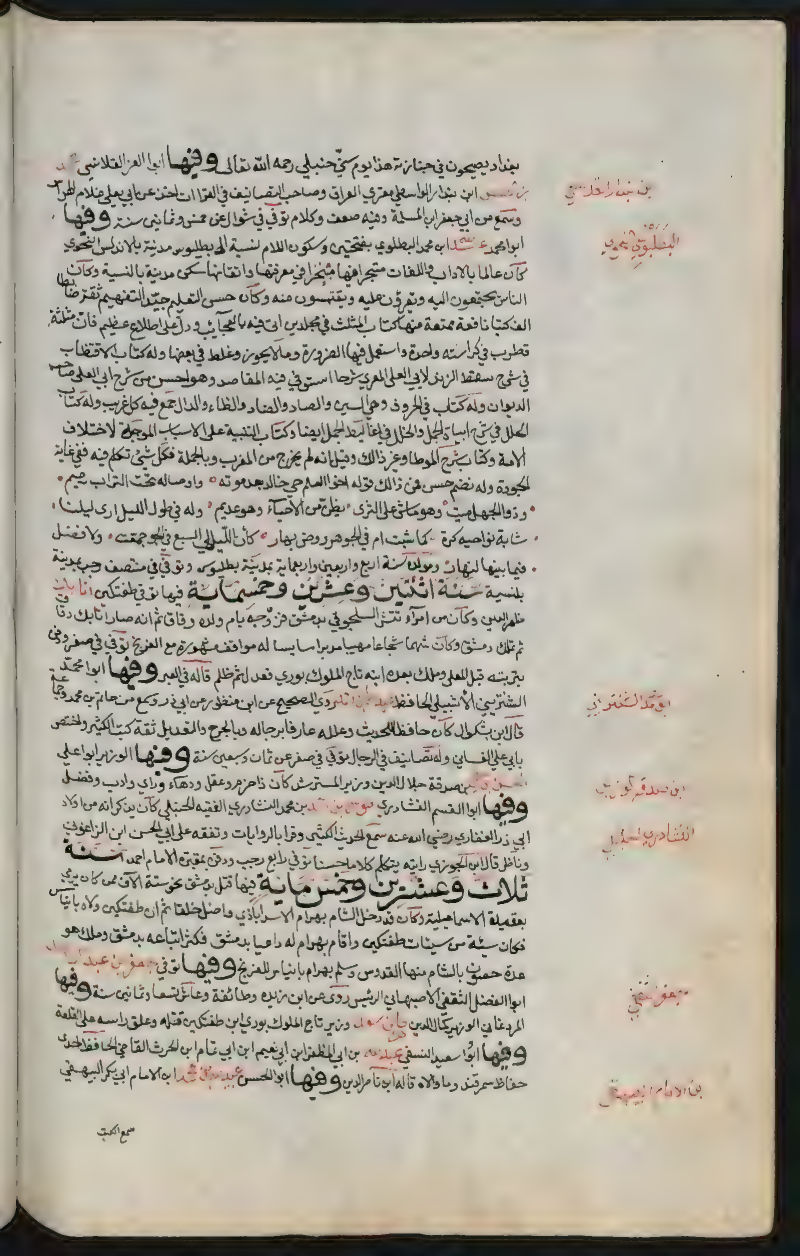 بغداد يصيحون في جنازته هذا يوم سني حنبلي رحمه الله تعالى وفيها ابوا العز القلانسي
ابن بندار الواسطي مقري العراق وصاحب التصانيف في القراات اخذ عن ابي علي غلام الهراس
بن بندار القلانسي
وسمع من ابي جعفر ابن المسلمة وفيه ضعف وكلام توفي في شوال عن خمس وثمانين سنة وفيها
ابوا محمد عبد الله ابن محمد البطليوسي بفتحتين وسكون اللام نسبة الى بطليوس مدينة بالاندلس النحوي
البطليوسي النحوي
كان عالما بالاداب واللغات متبحرا فيهما متبحرا في معرفتها واتقانها سكن مدينة بالنسية وكان
الناس يجتمعون اليه ويقرؤن عليه ويقتبسون منه وكان حسن التعليم جيد التفهيم ثقة ضابطا
الف كتبا نافعة ممتعة منها كتاب المثلث في مجلدين اتى فيه بالعجايب ودل على اطلاع عظيم فان مثلثة
قطروب في كراسة واحدة واستعمل فيها الضرورة وما لا يجوز وغلط في بعضها وله كتاب الاقتضاب
في شرح سقط الزند لابي العلى المعري شرحا استوفي فيه المقاصد وهو احسن من شرح ابي العلى صاحب
الديوان وله كتاب في الحروف وهي السين والصاد والضاد والظاء والدال جمع فيه كل غريب وله كتاب
الحلل في شرح ابيات الجمل والخلل في اغاليط الجمل ايضا وكتاب التنبية على الاسباب الموجبة لاختلاف
الامة وكتاب شرح الموطا وغير ذالك وقيل انه لم يخرج من المغرب وبالجملة فكل شئ تكلم فيه ففي غاية
الجودة وله نضم حسن فمن ذالك قوله اخوا العلم حي خالد بعد موته واوصاله تحت التراب رميم
وذوا الجهل ميت وهو ماش على الثرى يظن من الاحياء وهو عديم وله في طول الليل ارى ليلنا
شابة نواصيه كبرة كما شبت ام في الجو روض بهار كان الليالي السبع في الجو جمعت ولا فضل
فيما بينها لنهار ومولده سنة اربع واربعين واربعماية بمدينة بطليوس وتوفي في منتصف رجب بمدينة
بلنسية سنة اثنتين وعشرين وخمسماية فيها توفي طغتكين اتابك
ظهير الدين وكان من امراء تتش السلجوقي بدمشق فزوجه بام ولده دقاق ثم انه صار اتابك دقاق
ثم تملك دمشق وكان شهما شجاعا مهيبا مدبرا سايسا له مواقف مشهورة مع الفرنج توفي في صفر ودفن
بتربته قبلى المصلى وملك بعده ابنه تاج الملوك بوري فعدل ثم ظلم قاله في العبر وفيها ابوا محمد
الشنتريني الاشبيلي الحافظ عبد الله ابن احمد روى الصحيح عن ابن منظور عن ابي ذر وسمع من حاتم بن محمد وجماعة
ابو محمد الشنتريني
قال ابن بشكوال كان حافظا للحديث وعلله عارفا برجاله وبالجرح والتعديل ثقة كتب الكثير واختص
بابي علي الغساني وله تصانيف في الرجال توفي في صفر عن ثمان وسبعين سنة وفيها الوزير ابوا علي
الحسن بن علي بن صدقة جلال الدين وزير المسترشد كان ذا حزم وعقل ودهاء وراي وادب وفضل
ابن صدقة الوزير
وفيها ابوا القسم النشادري موسى بن احمد بن محمد النشادري الفقيه الحنبلي كان يذكر انه من اولاد
النشادري الحنبلي
ابي ذر الغفاري رضي الله عنه سمع الحديث الكثير وقرا بالروايات وتفقه على ابي الحسن ابن الزاغوني
وناظر قال ابن الجوزي رايته يتكلم كلاما حسنا توفي رابع رجب ودفن بمقبرة الامام احمد سنة
ثلاث وعشرين وخمس ماية فيها قتل بدمشق نحو ستة الاف ممن كان يرمي
بعقيدة الاسماعيلية وكان قد دخل الشام بهرام الاسراباذي واضل خلقا ثم ان طغتكين ولاه بانياس
فكان سيئة من سيئات طغتكين واقام بهرام له داعيا بدمشق فكثر اتباعه بدمشق وملك هو
عدة حصون بالشام منها القدموس وسلم بهرام بانياس للفرنج وفيها توفي جعفر بن عبد الواحد
ابوا الفضل الثقفي الاصبهاني الرئيس روى عن ابن ريذه وطائفة وعاش تسعا وثمانين سنة وفيها
جعفر ثقفي
المزدغاني الوزير كمال الدين وزير تاج الملوك بوري ابن طغتكين قتله وعلق راسه على القلعة
وفيها ابوا سعيد النسفي عبد الله بن ابي المظفر ابن ابي نعيم ابن ابي تمام ابن الحرث القاضي الحافظ احدى
حفاظ سمرقند وما والاه قاله ابن ناصر الدين وفيها ابو الحسن عبيد الله ابن محمد ابن الامام ابي بكر البيهقي
بن الامام البيهقي
سمع الكتب